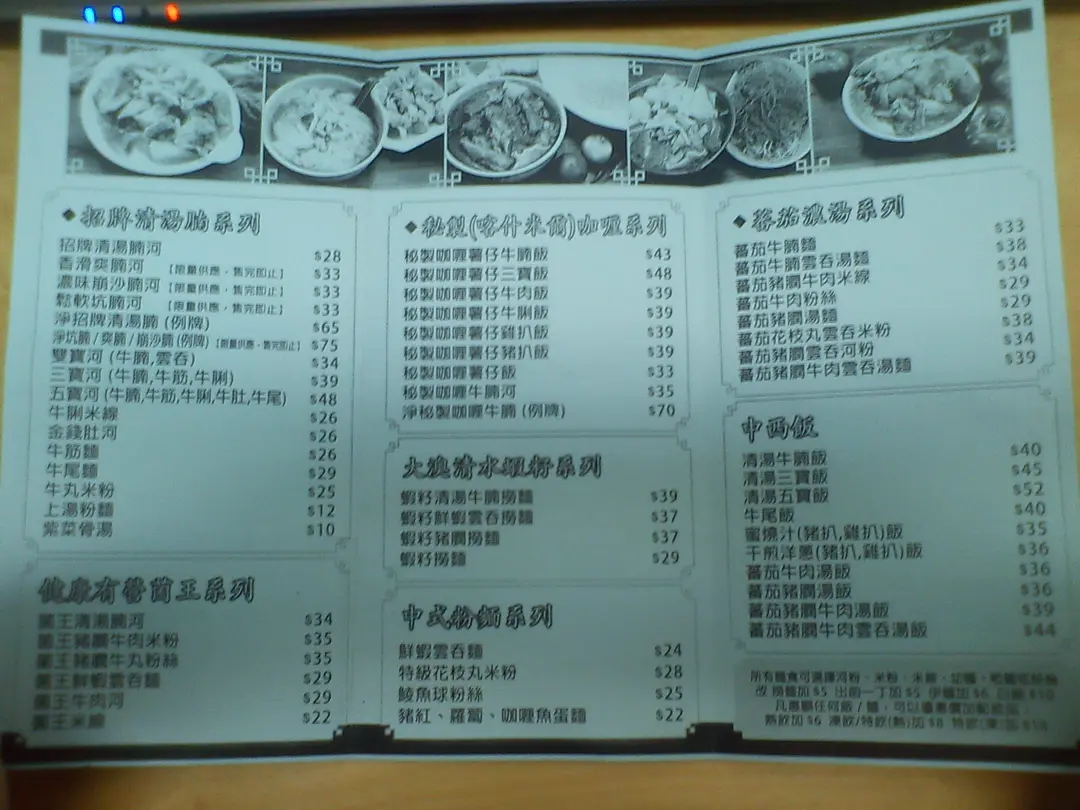 ◆招牌清湯腩系列
招牌清湯腩河 $28
香滑爽腩河 【限量供應,售完即止】 $33
濃味崩沙腩河 【限量供應,售完即止】 $33
鬆軟坑腩河 【限量供應,售完即止】 $33
淨招牌清湯腩 (例牌) $65
淨坑腩/爽腩/崩沙腩(例牌)【限量供應,售完即止】 $75
雙寶河 (牛腩,雲吞) $34
三寶河 (牛腩,牛筋,牛脷) $39
五寶河 (牛腩,牛筋,牛脷,牛肚,牛尾) $48
牛脷米線 $26
金錢肚河 $26
牛筋麵 $26
牛尾麵 $29
牛丸米粉 $25
上湯粉麵 $12
紫菜骨湯 $10
健康有營菌王系列
菌王清湯腩河 $34
菌王豬膶牛肉米粉 $35
菌王豬膶牛丸粉絲 $35
菌王鮮蝦雲吞麵 $29
菌王牛肉河 $29
菌王米線 $22
◆秘製(喀什米爾)咖喱系列
秘製咖喱薯仔牛腩飯 $43
秘製咖喱薯仔三寶飯 $48
秘製咖喱薯仔牛肉飯 $39
秘製咖喱薯仔牛脷飯 $39
秘製咖喱薯仔雞扒飯 $39
秘製咖喱薯仔豬扒飯 $39
秘製咖喱薯仔飯 $33
秘製咖喱牛腩河 $35
淨秘製咖喱牛腩 (例牌) $70
大澳清水蝦籽系列
蝦籽清湯牛腩撈麵 $39
蝦籽鮮蝦雲吞撈麵 $37
蝦籽豬膶撈麵 $37
蝦籽撈麵 $29
中式粉麵系列
鮮蝦雲吞麵 $24
特級花枝丸米粉 $28
鯪魚球粉絲 $25
豬紅、蘿蔔、咖喱魚蛋麵 $22
◆蕃茄濃湯系列
蕃茄牛腩麵 $33
蕃茄牛腩雲吞湯麵 $38
蕃茄豬膶牛肉米線 $34
蕃茄牛肉粉絲 $29
蕃茄豬膶湯麵 $29
蕃茄花枝丸雲吞米粉 $38
蕃茄豬膶雲吞河粉 $34
蕃茄豬膶牛肉雲吞湯麵 $39
中西飯
清湯牛腩飯 $40
清湯三寶飯 $45
清湯五寶飯 $52
牛尾飯 $40
蜜燒汁(豬扒,雞扒)飯 $35
干煎洋蔥(豬扒,雞扒)飯 $36
蕃茄牛肉湯飯 $36
蕃茄豬膶湯飯 $36
蕃茄豬膶牛肉湯飯 $39
蕃茄豬膶牛肉雲吞湯飯 $44
所有麵食可選擇河粉、米粉、米線、幼麵、粗麵或粉絲
改 撈麵加 $5 出前一丁加 $5 伊麵加 $6 $10
凡惠顧任何飯/麵,可以優惠價加配飲品:
熱飲加 $6 凍飲/特飲(熱)加 $8 特飲(凍)加 $10